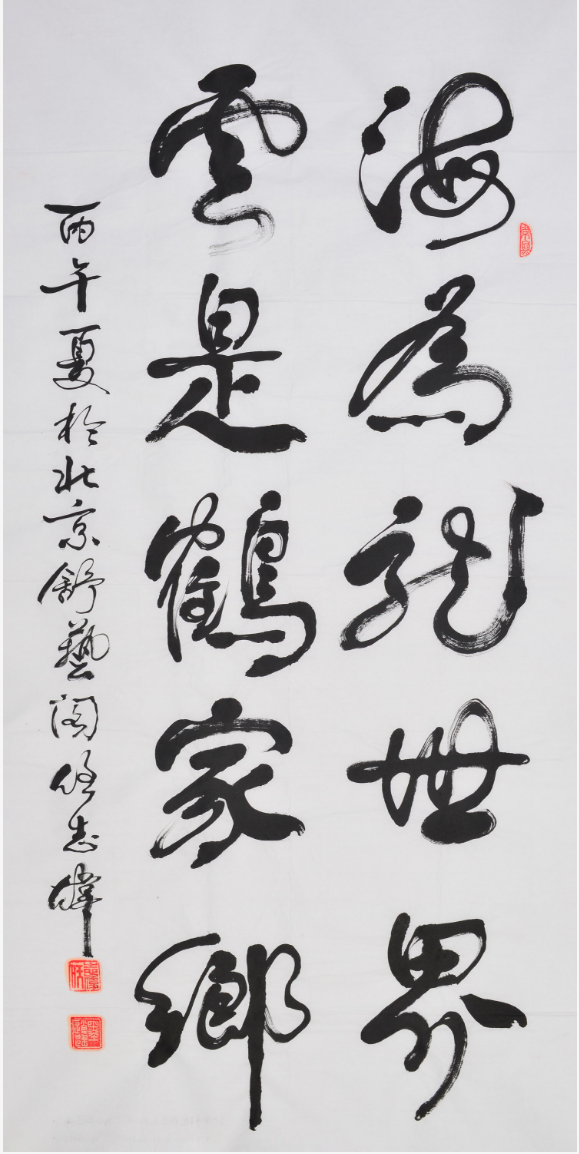 海為龍世界
雲是鶴家鄉
丙午夏於北京舒藝閣任志偉